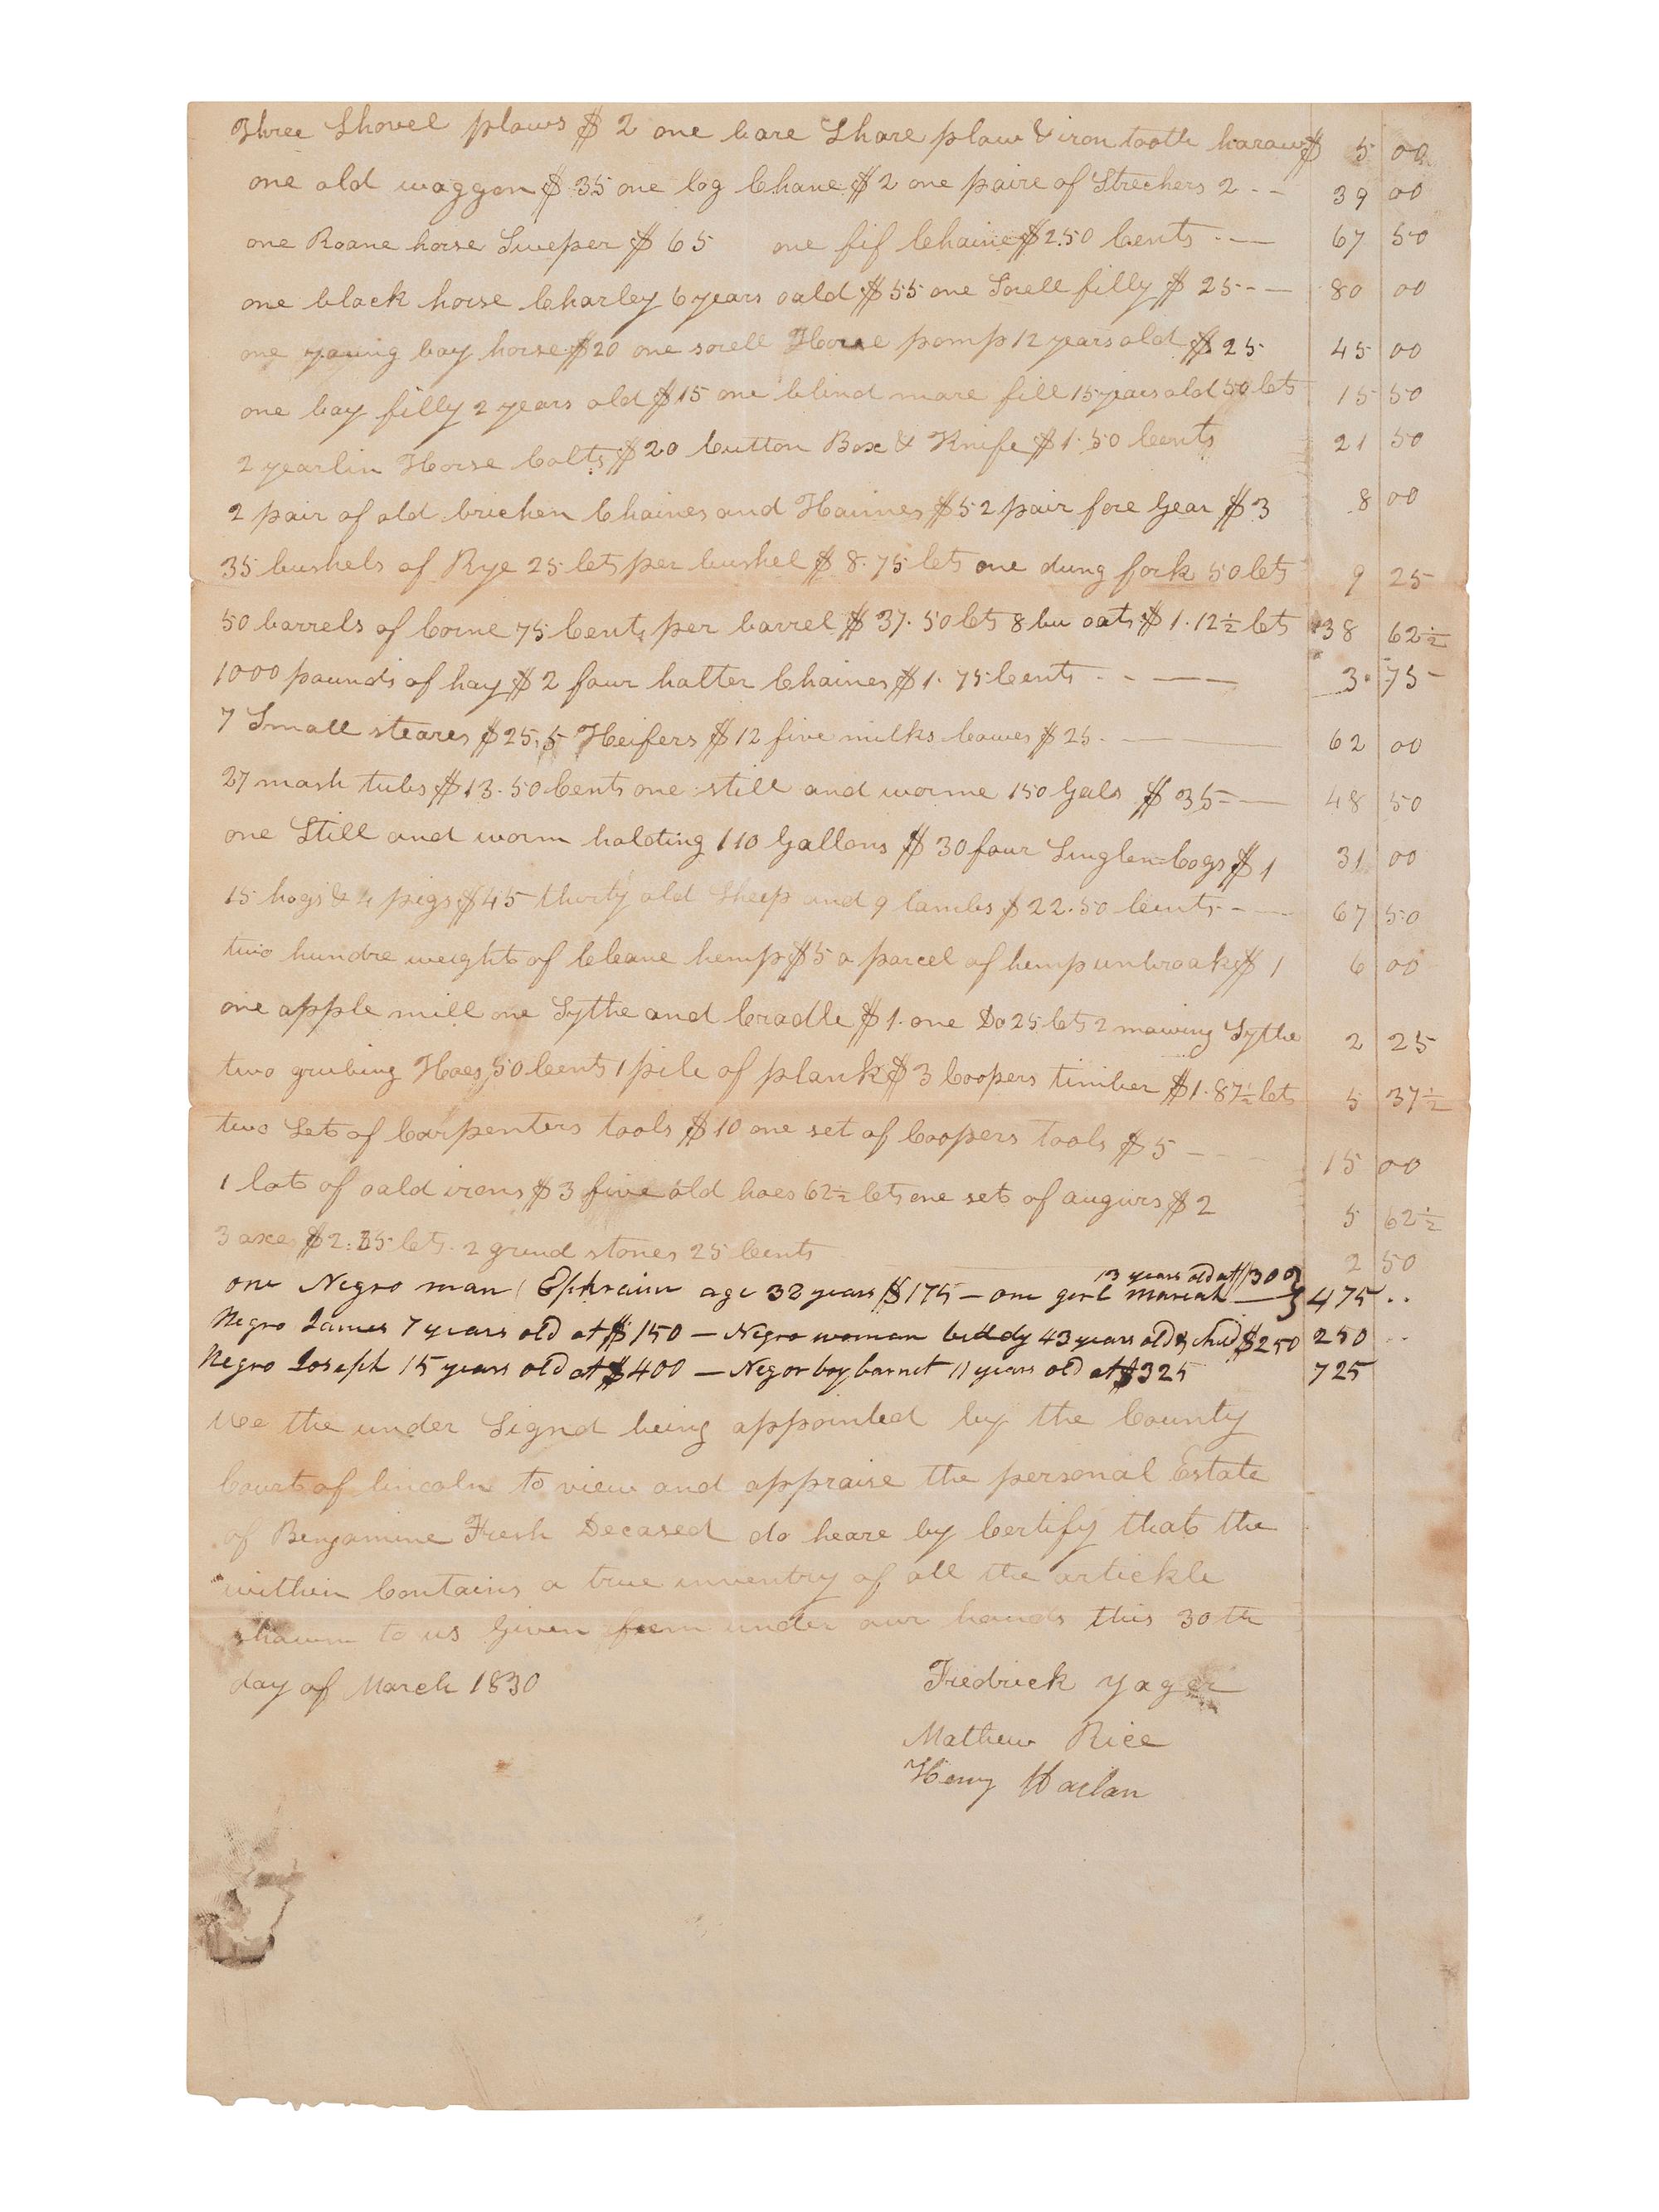 Three Shovel plows $ 2 one bare Share plow & iron tooth haraw $ 5 00
one old waggon $ 35 one log Chane $ 2 one paire of Strechers 2 -- 39 00
one Roane horse Sweper $ 65 one fif Chaine $ 2.50 Cents -- 67 50
one black horse Charley 6 years oald $ 55 one Sorell filly $ 25 -- 80 00
one young bay horse $ 20 one sorell Horse pomp 12 years old $ 25 45 00
one bay filly 2 years old $ 15 one blind mare fill 15 years old 50 Cts 15 50
2 yearlin Horse Colts $ 20 Cutton Box & Knife $ 1.50 Cents 21 50
2 pair of old brichen Chaines and Haimes $ 5 2 pair fore Gear $ 3 8 00
35 bushels of Rye 25 Cts per bushel $ 8.75 Cts one dung fork 50 Cts 9 25
50 barrels of Corne 75 Cents per barrel $ 37.50 Cts 8 bu oats $ 1.12½ Cts 38 62½
1000 pounds of hay $ 2 four halter Chaines $ 1.75 Cents - - — 3 75
7 Small steares $ 25, 5 Heifers $ 12 five milks Cowes $ 25 - — 62 00
27 mash tubs $ 13.50 Cents one still and worme 150 Gals $ 35 - — 48 50
one Still and worm holding 110 Gallons $ 30 four Cogs $ 1 31 00
15 hogs & 4 pigs $ 45 thirty old Sheep and 9 lambs $ 22.50 Cents - — 67 50
two hundre weight of Cleane hemp $ 5 a parcel of hemp unbroak $ 1 6 00
one apple mill one Sythe and Cradle $ 1. one Do 25 Cts 2 mowing Sythe 2 25
two grubing Hoes 50 Cents 1 pile of plank $ 3 Coopers timber $ 1.87½ Cts 5 37½
two Set of Carpenters tools $ 10 one set of Coopers tools $ 5 - - 15 00
1 lot of oald irons $ 3 five old hoes 62½ Cts one set of augurs $ 2 5 62½
3 axes $ 2.25 Cts. 2 grind stones 25 Cents 2 50
13 years old at $300
one Negro man Ephraim age 32 years $175 — one girl Mariah — 475 ..
Negro James 7 years old at $150 — Negro woman biddy 43 years old & child $250 250 ..
Negro Joseph 15 years old at $400 — Negor boy barnet 11 years old at $325 725
We the under Signd being appointed by the County
Court of lincoln to view and appraise the personal Estate
of Benjamine Fresh Decased do heare by Certify that the
within Contains a true inventry of all the artickle
shawn to us Given from under our hands this 30th
day of March 1830
Fredrick Yager
Mathew Rice
Henry Harlan